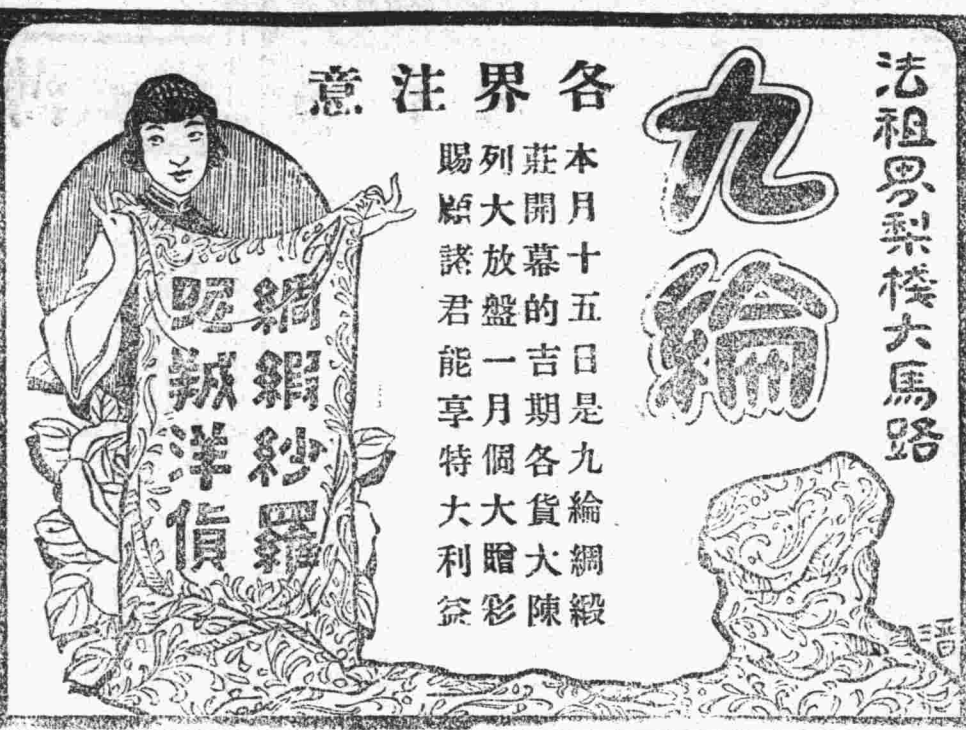 法租界梨棧大馬路
九綸
各界注意
本月十五日是九綸綢緞
莊開幕的吉期各貨大陳
列大放盤一月個大贈彩
賜顧諸君能享特大利益
綢緞紗羅
呢絨洋貨